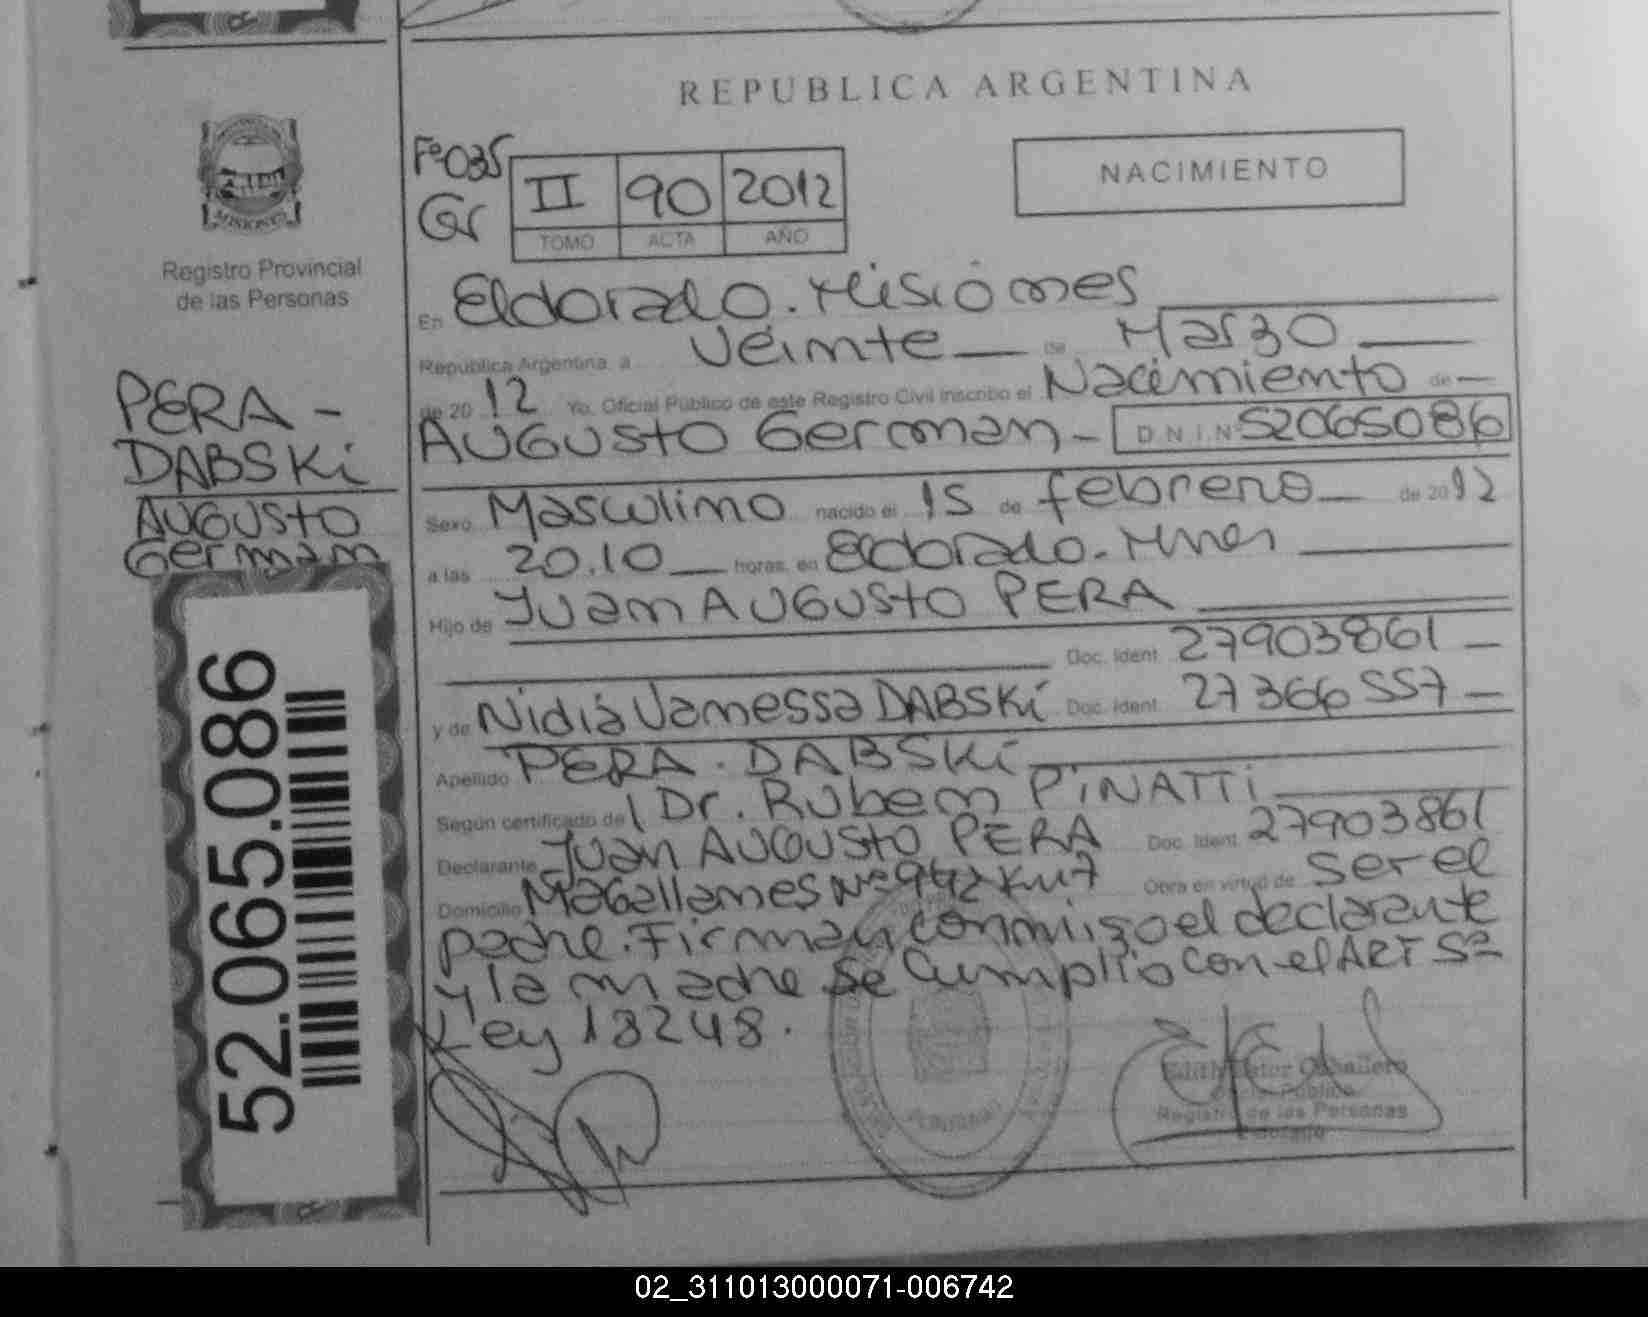 REPUBLICA ARGENTINA
NACIMIENTO
Fº 035
Gr
II 90 2012
TOMO ACTA AÑO
MISIONES
Registro Provincial
de las Personas
PERA -
DABSKi
AUGUSTO
German
52.065.086
En Eldorado. Misiones
Republica Argentina a veinte de Marzo
de 2012 Yo, Oficial Público de este Registro Civil inscribo el Nacimiento de
AUGUSTO German - D.N.I.Nº 52065086
Sexo Masculino nacido el 15 de febrero de 2012
a las 20.10 horas, en Eldorado. Mnes
Hijo de Juan AUGUSTO PERA
Doc. Ident. 27903861
y de Nidia Vanessa DABSKi Doc. Ident. 27366557
Apellido PERA. DABSKi
Según certificado del Dr. Ruben PiNATTi
Declarante Juan AUGUSTO PERA Doc. Ident. 27903861
Domicilio Magallanes Nº 942 Km 7 Obra en virtud de ser el
padre. Firman conmigo el declarante
y la madre se cumplio con el ART 5ª
Ley 18248.
Edith Caballero
Registro de las Personas
Eldorado
02_311013000071-006742